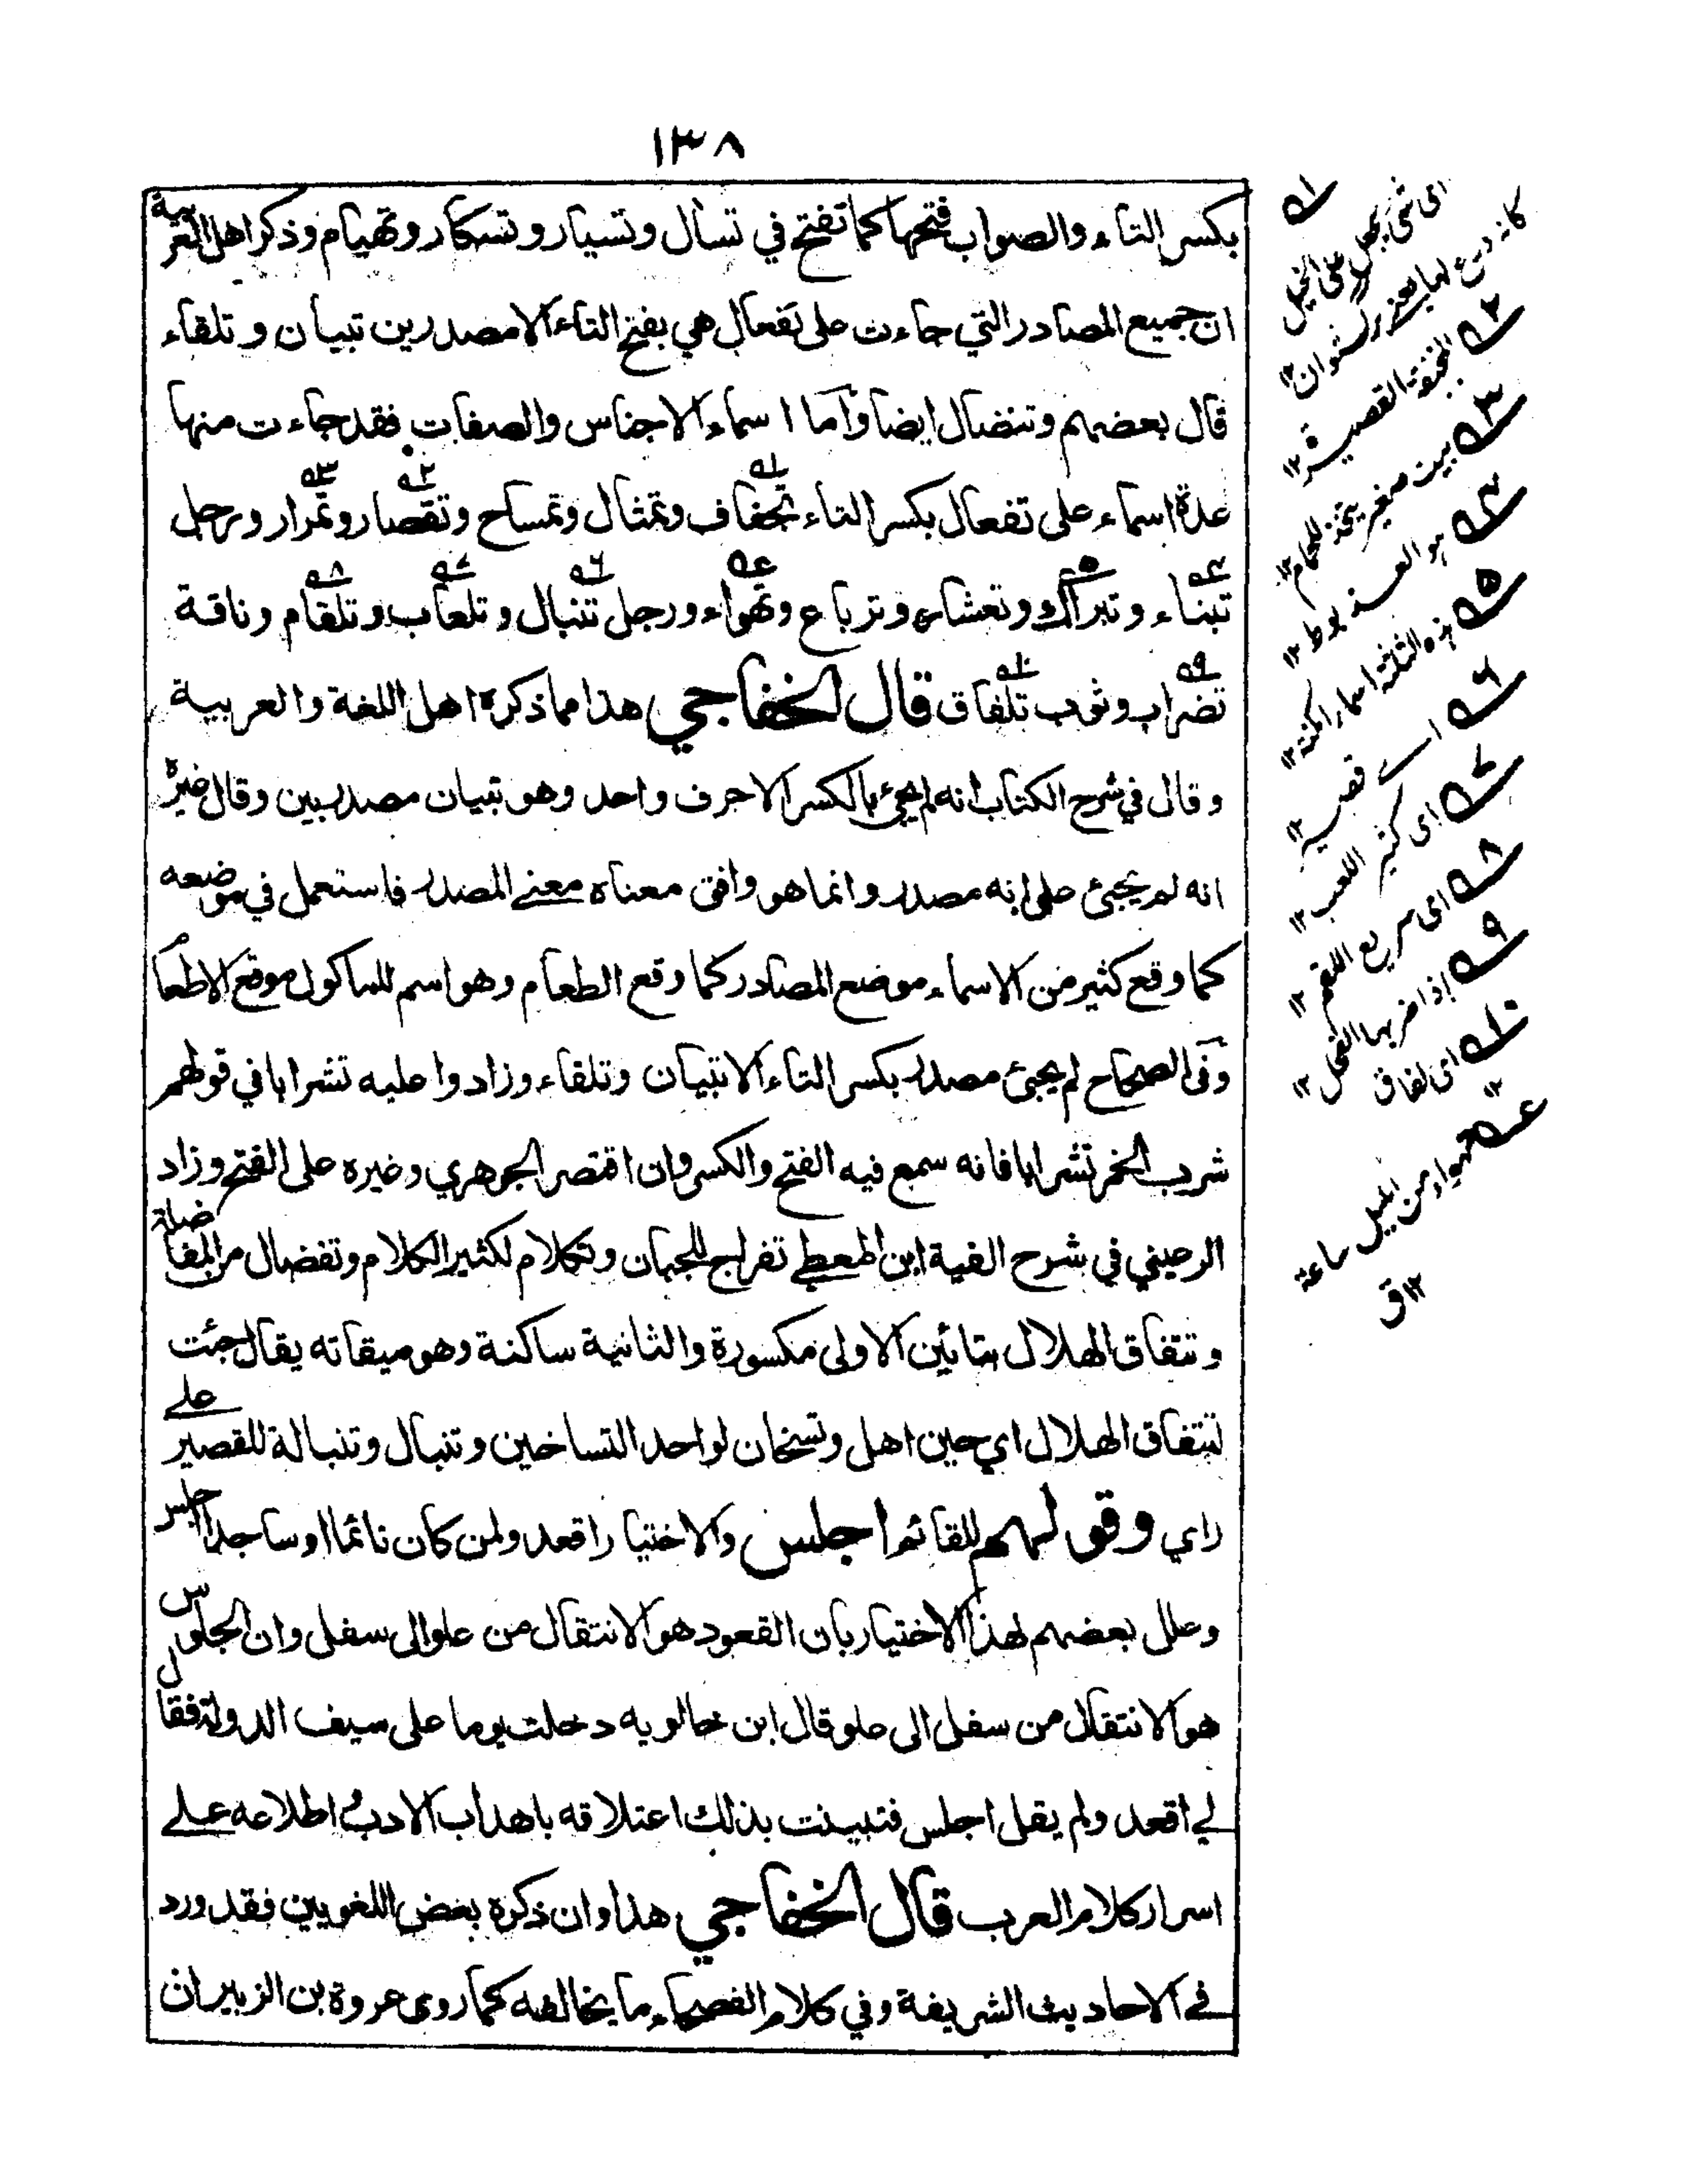 ١٣٨
بكسر التاء والصواب فتحها كما تفتح في تسأل وتسيار وتسكار وتهيام وذكر اهل العربية
ان جميع المصادر التي جاءت على تفعال هي بفتح التاء الا مصدرين تبيان وتلقاء
قال بعضهم وتنضال ايضا وأما اسماء الاجناس والصفات فقد جاءت منها
عدة اسماء على تفعال بكسر التاء تجفاف وتمثال وتمساح وتقصار وتمراد ورجل
تبناء وتبراك وتعشار وترباع وتهواء ورجل تنبال وتلعاب وتلقام وناقة
تضراب وثوب تلفاق قال الخفاجي هذا مما ذكره اهل اللغة والعربية
وقال في شرح الكتاب انه لم يجئ بالكسر الا حرف واحد وهو تبيان مصدر بين وقال غيره
انه لم يجئ على انه مصدر وانما هو وافق معناه معنے المصدر فاستعمل في موضعه
كما وقع كثير من الاسماء موضع المصادر كما وقع الطعام وهو اسم للماكول موقع الاطعام
وفى الصحاح لم يجئ مصدر بكسر التاء الا تبيان وتلقاء وزادوا عليه تشرابا في قولهم
شرب الخمر تشرابا فانه سمع فيه الفتح والكسر وان اقتصر الجوهري وغيره على الفتح وزاد
الرعيني في شرح الفية ابن المعطے تفراج للجبان وتكلام لكثير الكلام وتفضال من المفاضلة
وتتفاق الهلال بتائين الاولى مكسورة والثانية ساكنة وهو ميقاته يقال جئت
لتتفاق الهلال اي حين اهل وتسخان لواحد التساخين وتنبال وتنبالة للقصير علے
راي وقولهم للقائم اجلس والاختيار اقعد ولمن كان نائما او ساجدا اجلس
وعلل بعضهم لهذا الاختيار بان القعود هو الانتقال من علو الى سفل وان الجلوس
هو الانتقال من سفل الى علو قال ابن خالويه دخلت يوما على سيف الدولة فقال
لي اقعد ولم يقل اجلس فتبينت بذلك اعتلاقه باهداب الادب واطلاعه علے
اسرار كلام العرب قال الخفاجي هذا وان ذكره بعض اللغويين فقد ورد
فے الاحاديث الشريفة وفي كلام الفصحاء ما يخالفه كما روى عروة بن الزبير ان
١ اى شئ يجعل على الخيل
كانه درع لها
٢ المخنقة القصيرة ١٢
٣ بيت صغير يتخذ للحمام ١٢
٤ هو العذيوط ١٢
٥ هذه الثلثة اسماء امكنة ١٢
٦ اے قصير ١٢
٧ اى كثير اللعب ١٢
٨ اى سريع اللقم ١٢
٩ اذا ضربها الفحل ١٢
١٠ اى لفاق ١٢
عه تهواء من الليل ساعة
١٢ ق